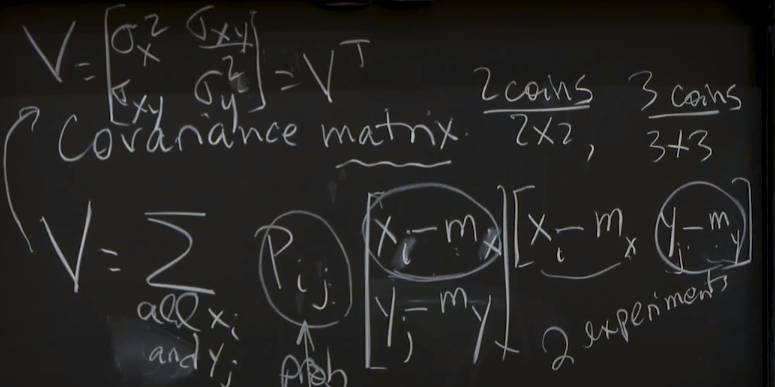 V = [σx² σxy
σxy σy²] = Vᵀ
Covariance matrix.
2 coins
2×2,
3 coins
3×3
V = Σ Pij [xi − mx
yj − my] [xi − mx yj − my]
all xi
and yj
prob
2 experiments